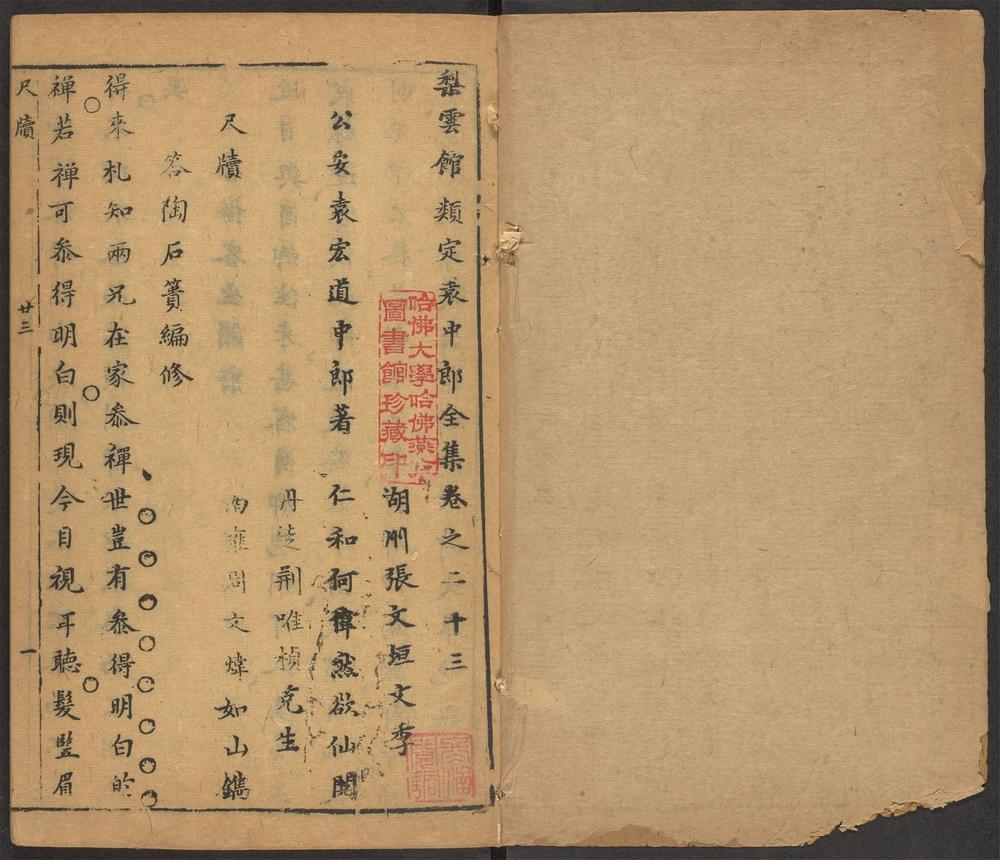 梨雲館類定袁中郎全集卷之二十三
湖州張文垣文季
公安袁宏道中郎著
仁和何偉然欲仙閱
丹徒荆唯楨克生
尺牘
西雍周文煒如山鐫
答陶石簣編修
得來札知兩兄在家叅禪世豈有叅得明白的
禅若禅可叅得明白則現今目視耳聽髮豎眉
尺牘
廿三
一
哈佛大學哈佛燕京
圖書館珍藏印